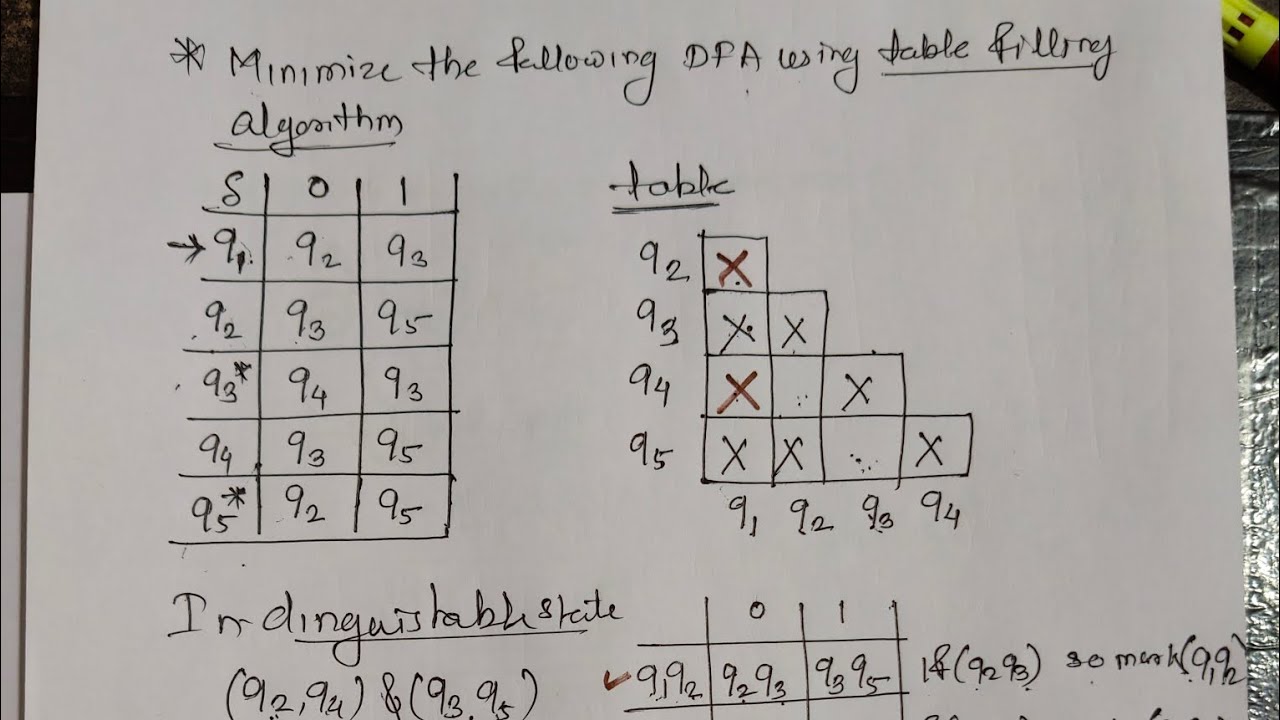 * Minimize the following DFA using table filling
algorithm
δ 0 1
→ q1 q2 q3
q2 q3 q5
q3* q4 q3
q4 q3 q5
q5* q2 q5
table
q2 X
q3 X X
q4 X X
q5 X X X
q1 q2 q3 q4
In-dinguistable state
(q2, q4) & (q3, q5)
0 1
✓ q1q2 q2q3 q3q5 If (q2q3) so mark (q1q2